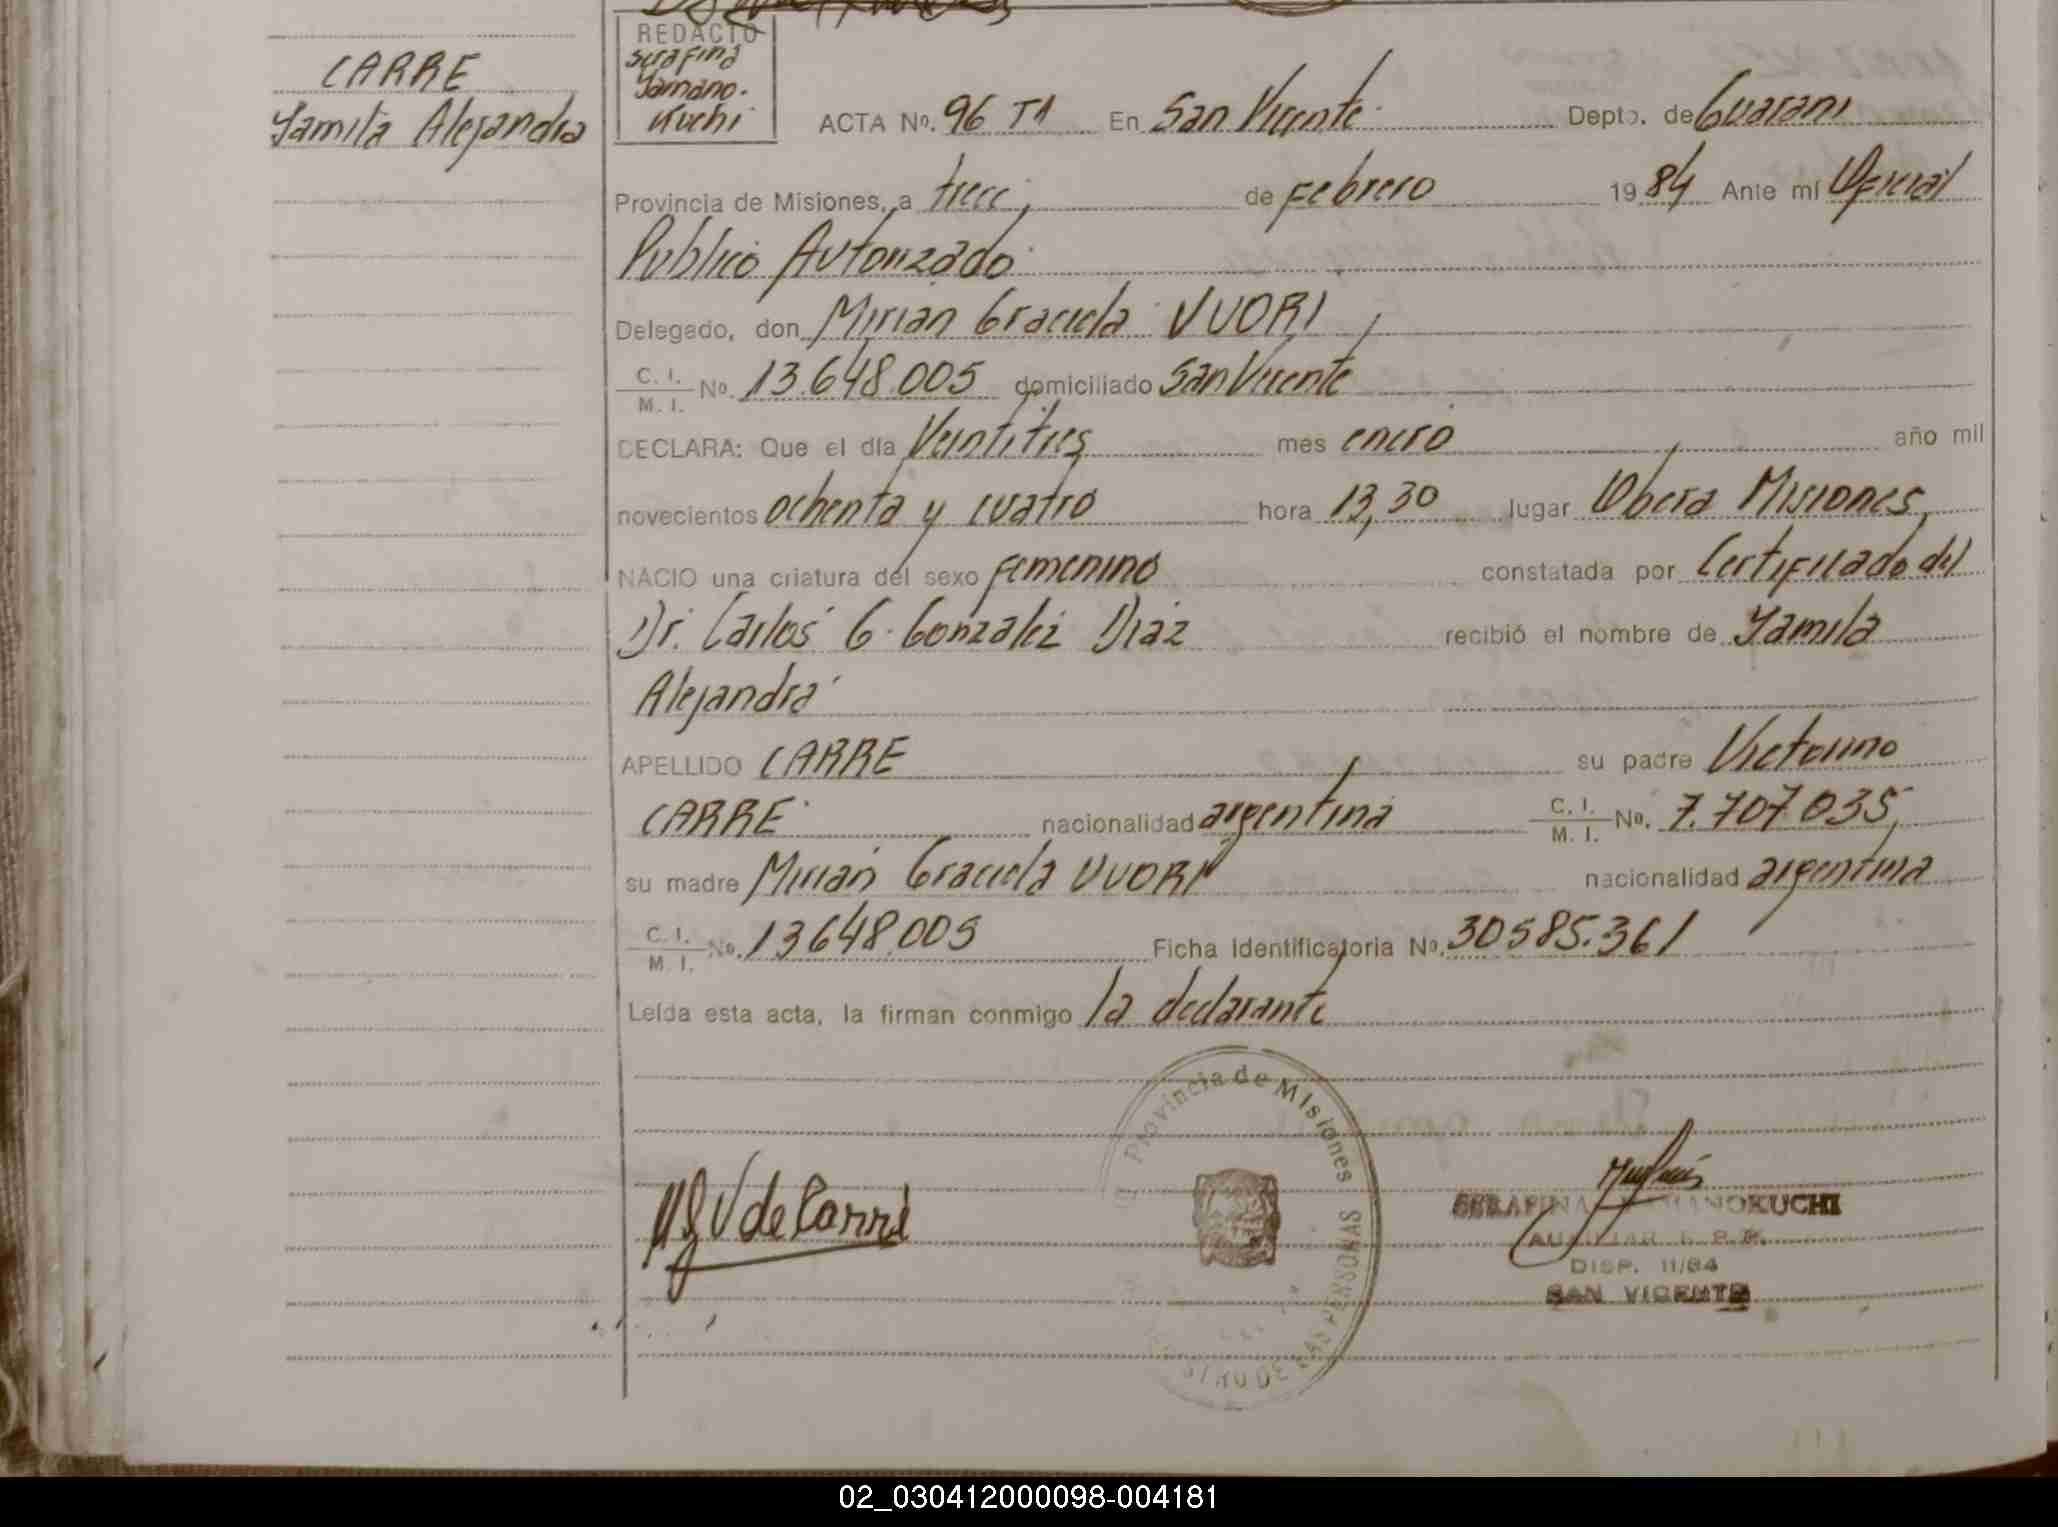 CARRE
Yamila Alejandra
REDACTO
Serafina
Yamano.
Kuchi
ACTA Nº. 96 Tº1 En San Vicente Depto. de Guarani
Provincia de Misiones, a trece, de Febrero 1984 Ante mí Oficial
Publico Autorizado
Delegado, don Mirian Graciela VUORI,
C. I. / M. I. Nº. 13.648.005 domiciliado San Vicente
DECLARA: Que el día Veintitres mes enero año mil
novecientos ochenta y cuatro hora 13,30 lugar Obera Misiones,
NACIO una criatura del sexo femenino constatada por Certificado del
Dr. Carlos G. Gonzalez Diaz recibió el nombre de Yamila
Alejandra
APELLIDO CARRE su padre Victorino
CARRE nacionalidad argentina C. I. / M. I. Nº. 7.707.035,
su madre Mirian Graciela VUORI nacionalidad argentina
C. I. / M. I. Nº. 13648.005 Ficha Identificatoria Nº. 30585.361
Leída esta acta, la firman conmigo la declarante
Provincia de Misiones
REGISTRO DE LAS PERSONAS
MGV de Carré
SERAFINA YAMANOKUCHI
AUXILIAR
DISP. 11/84
SAN VICENTE
02_030412000098-004181